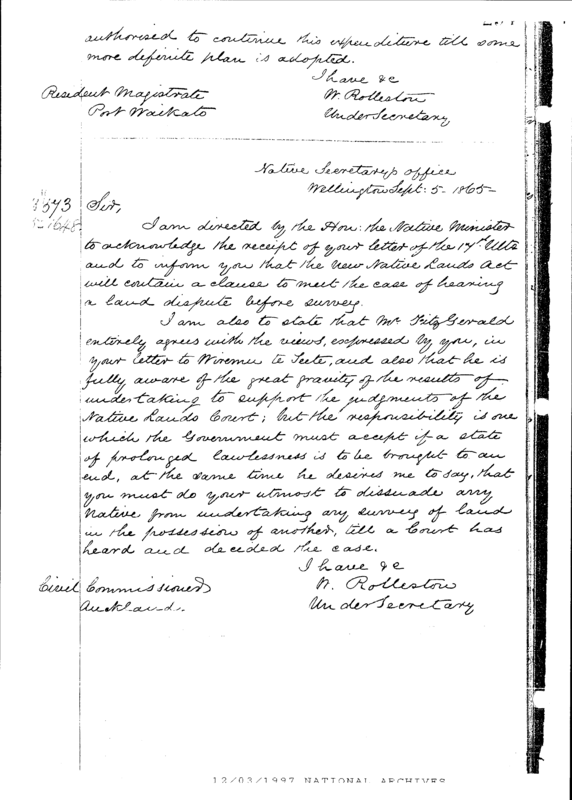 authorised to continue this expenditure till some
more definite plan is adopted.
I have &c
Resident Magistrate W. Rolleston
Port Waikato Under Secretary
Native Secretary's office
Wellington Sept: 5 - 1865 -
573 Sir,
1648
I am directed by the Hon: the Native Minister
to acknowledge the receipt of your letter of the 17th Ulto
and to inform you that the new Native Lands Act
will contain a clause to meet the case of hearing
a land dispute before survey.
I am also to state that Mr FitzGerald
entirely agrees with the views, expressed by you, in
your letter to Wiremu te , and also that he is
fully aware of the great gravity of the results of
undertaking to support the judgments of the
Native Lands Court; but the responsibility is one
which the Government must accept if a state
of prolonged lawlessness is to be brought to an
end, at the same time he desires me to say, that
you must do your utmost to dissuade any
Native from undertaking any survey of land
in the possession of another, till a Court has
heard and decided the case.
I have &c
Civil Commissioner W. Rolleston
Auckland. Under Secretary
12/03/1997 NATIONAL ARCHIVES